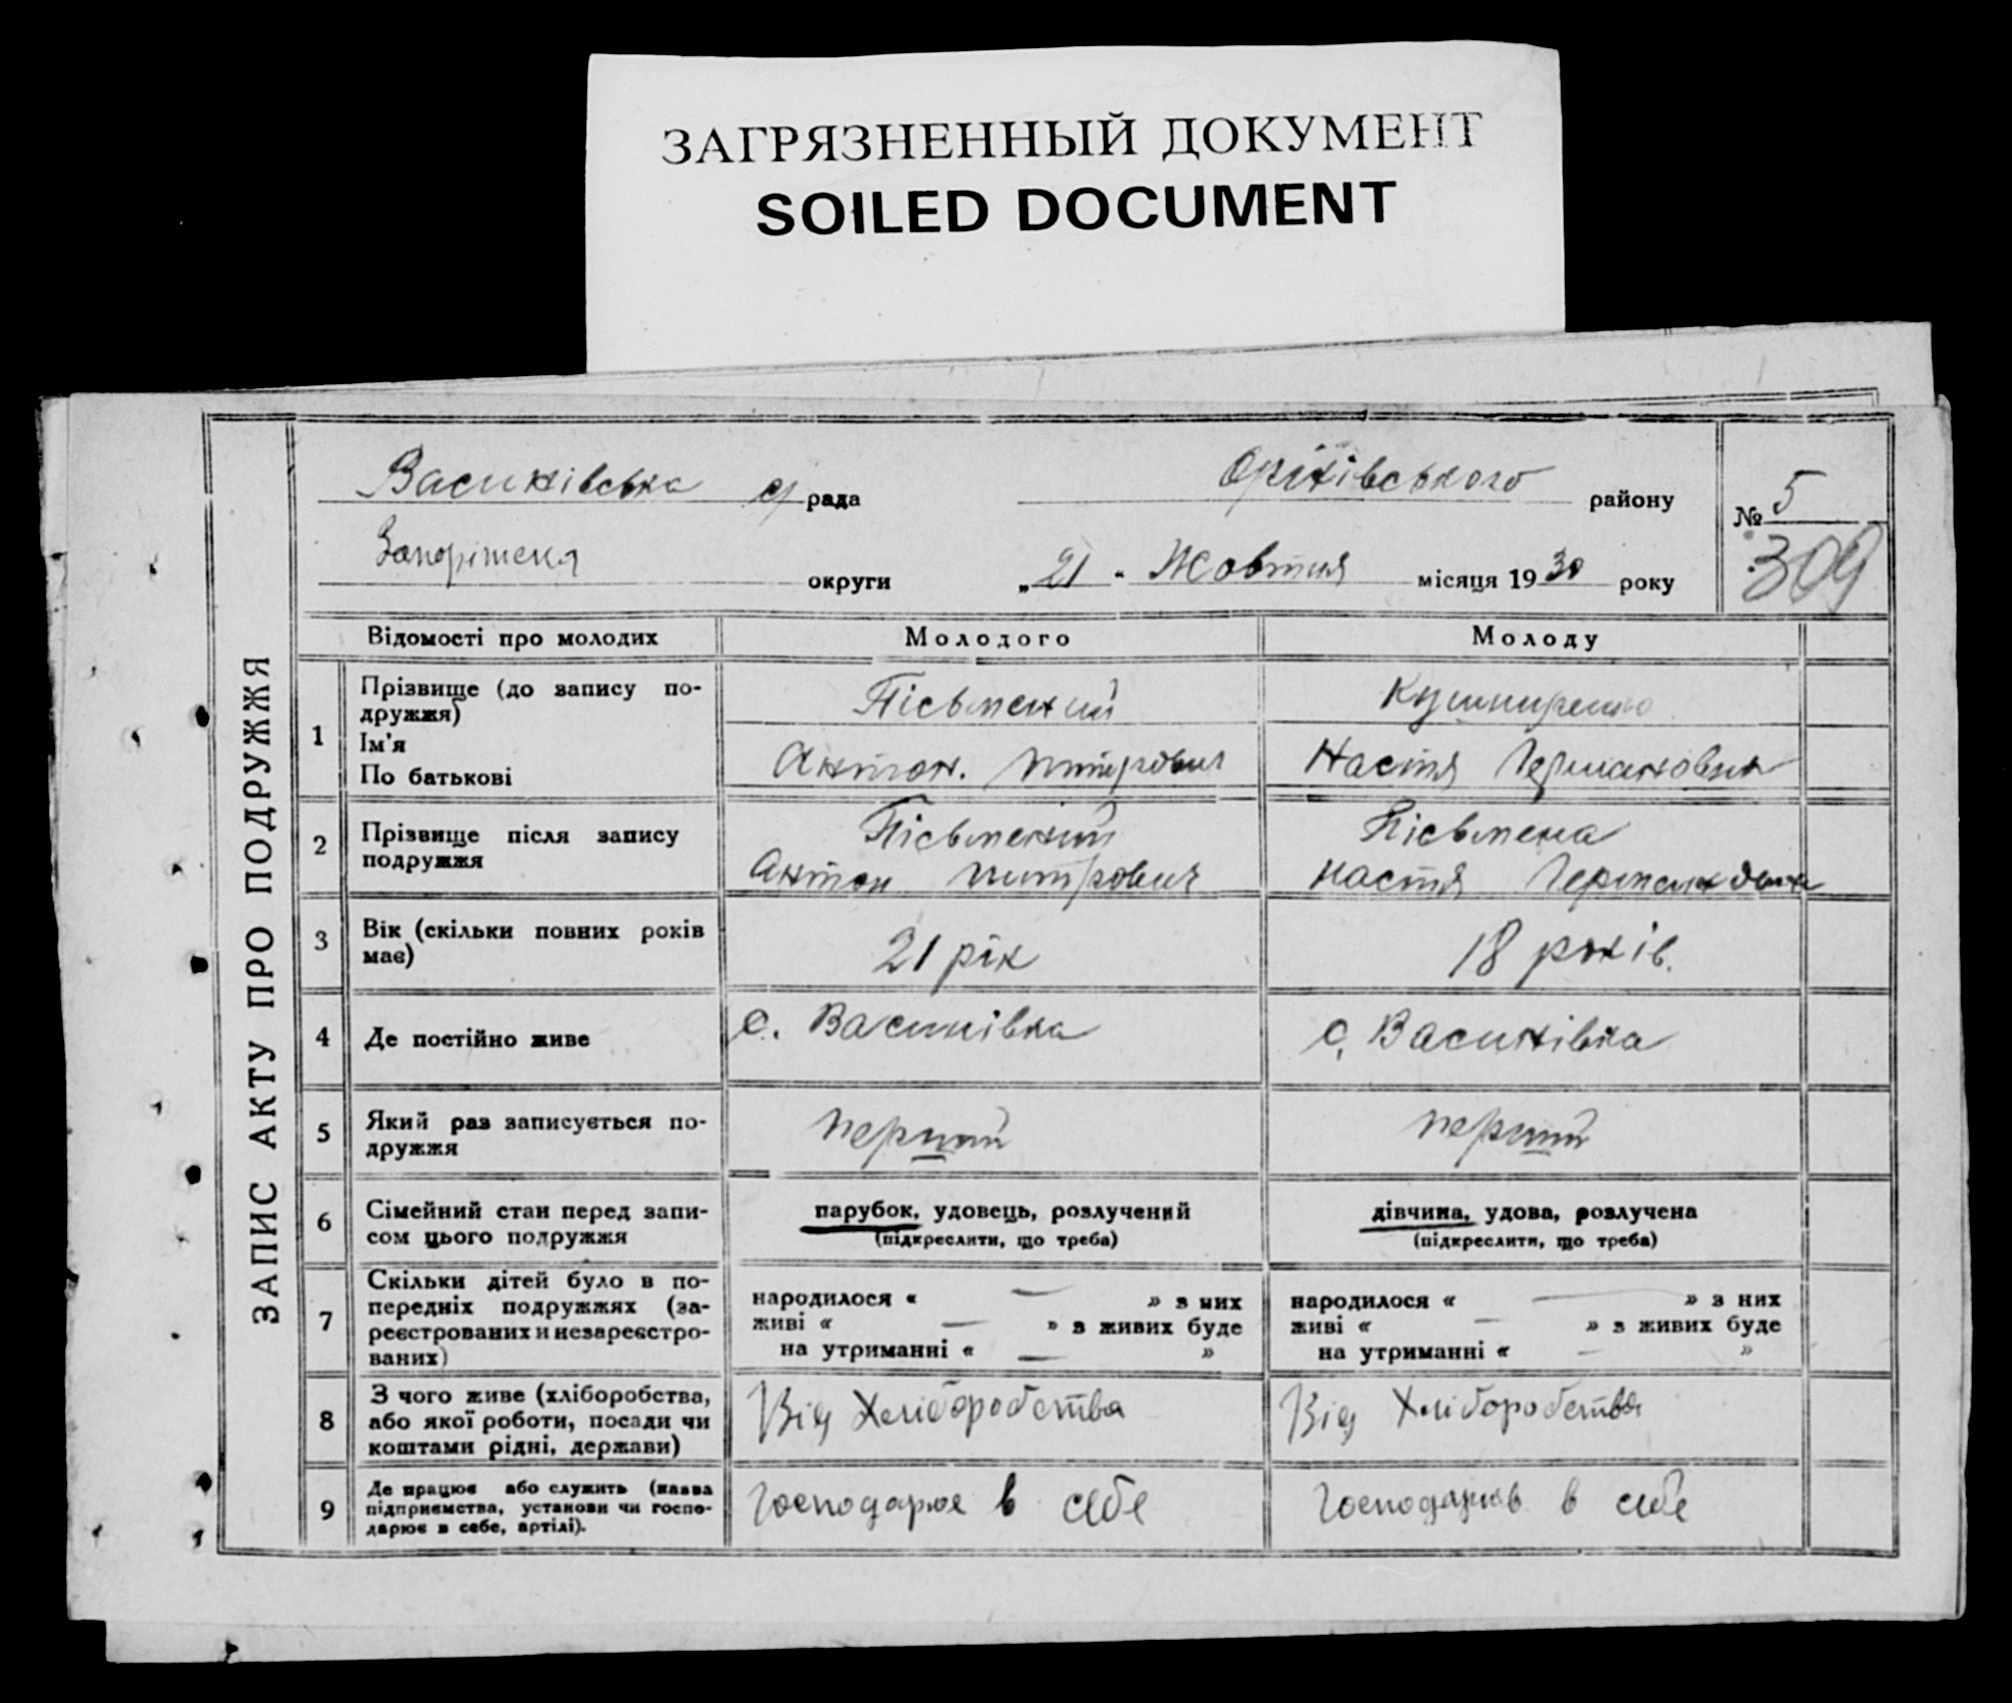 ЗАГРЯЗНЕННЫЙ ДОКУМЕНТ
SOILED DOCUMENT
ЗАПИС АКТУ ПРО ПОДРУЖЖЯ
Васинівська с/рада Оріхівського району
№ 5
Запоріжська округи „21" Жовтня місяця 1930 року
309
Відомості про молодих Молодого Молоду
1 Прізвище (до запису по-
дружжя) Пісьменний Кушниренко
Ім'я
По батькові Антон. Митрович Настя Германовна
2 Прізвище після запису
подружжя Пісьменний Пісьмена
Антон Митрович Настя Германовна
3 Вік (скільки повних років
має) 21 рік 18 років.
4 Де постійно живе с. Васинівка с. Васинівка
5 Який раз записується по-
дружжя перший перший
6 Сімейний стан перед запи-
сом цього подружжя
парубок, удовець, розлучений
(підкреслити, що треба)
дівчина, удова, розлучена
(підкреслити, що треба)
7 Скільки дітей було в по-
передніх подружжях (за-
реєстрованих и незареєстро-
ваних)
народилося « — » з них
живі « — » з живих буде
на утриманні « — »
народилося « — » з них
живі « — » з живих буде
на утриманні « — »
8 З чого живе (хліборобства,
або якої роботи, посади чи
коштами рідні, держави)
Від Хліборобства Від Хліборобства
9 Де працює або служить (назва
підприємства, установи чи госпо-
дарює в себе, артілі).
Господарює в себе Господарює в себе